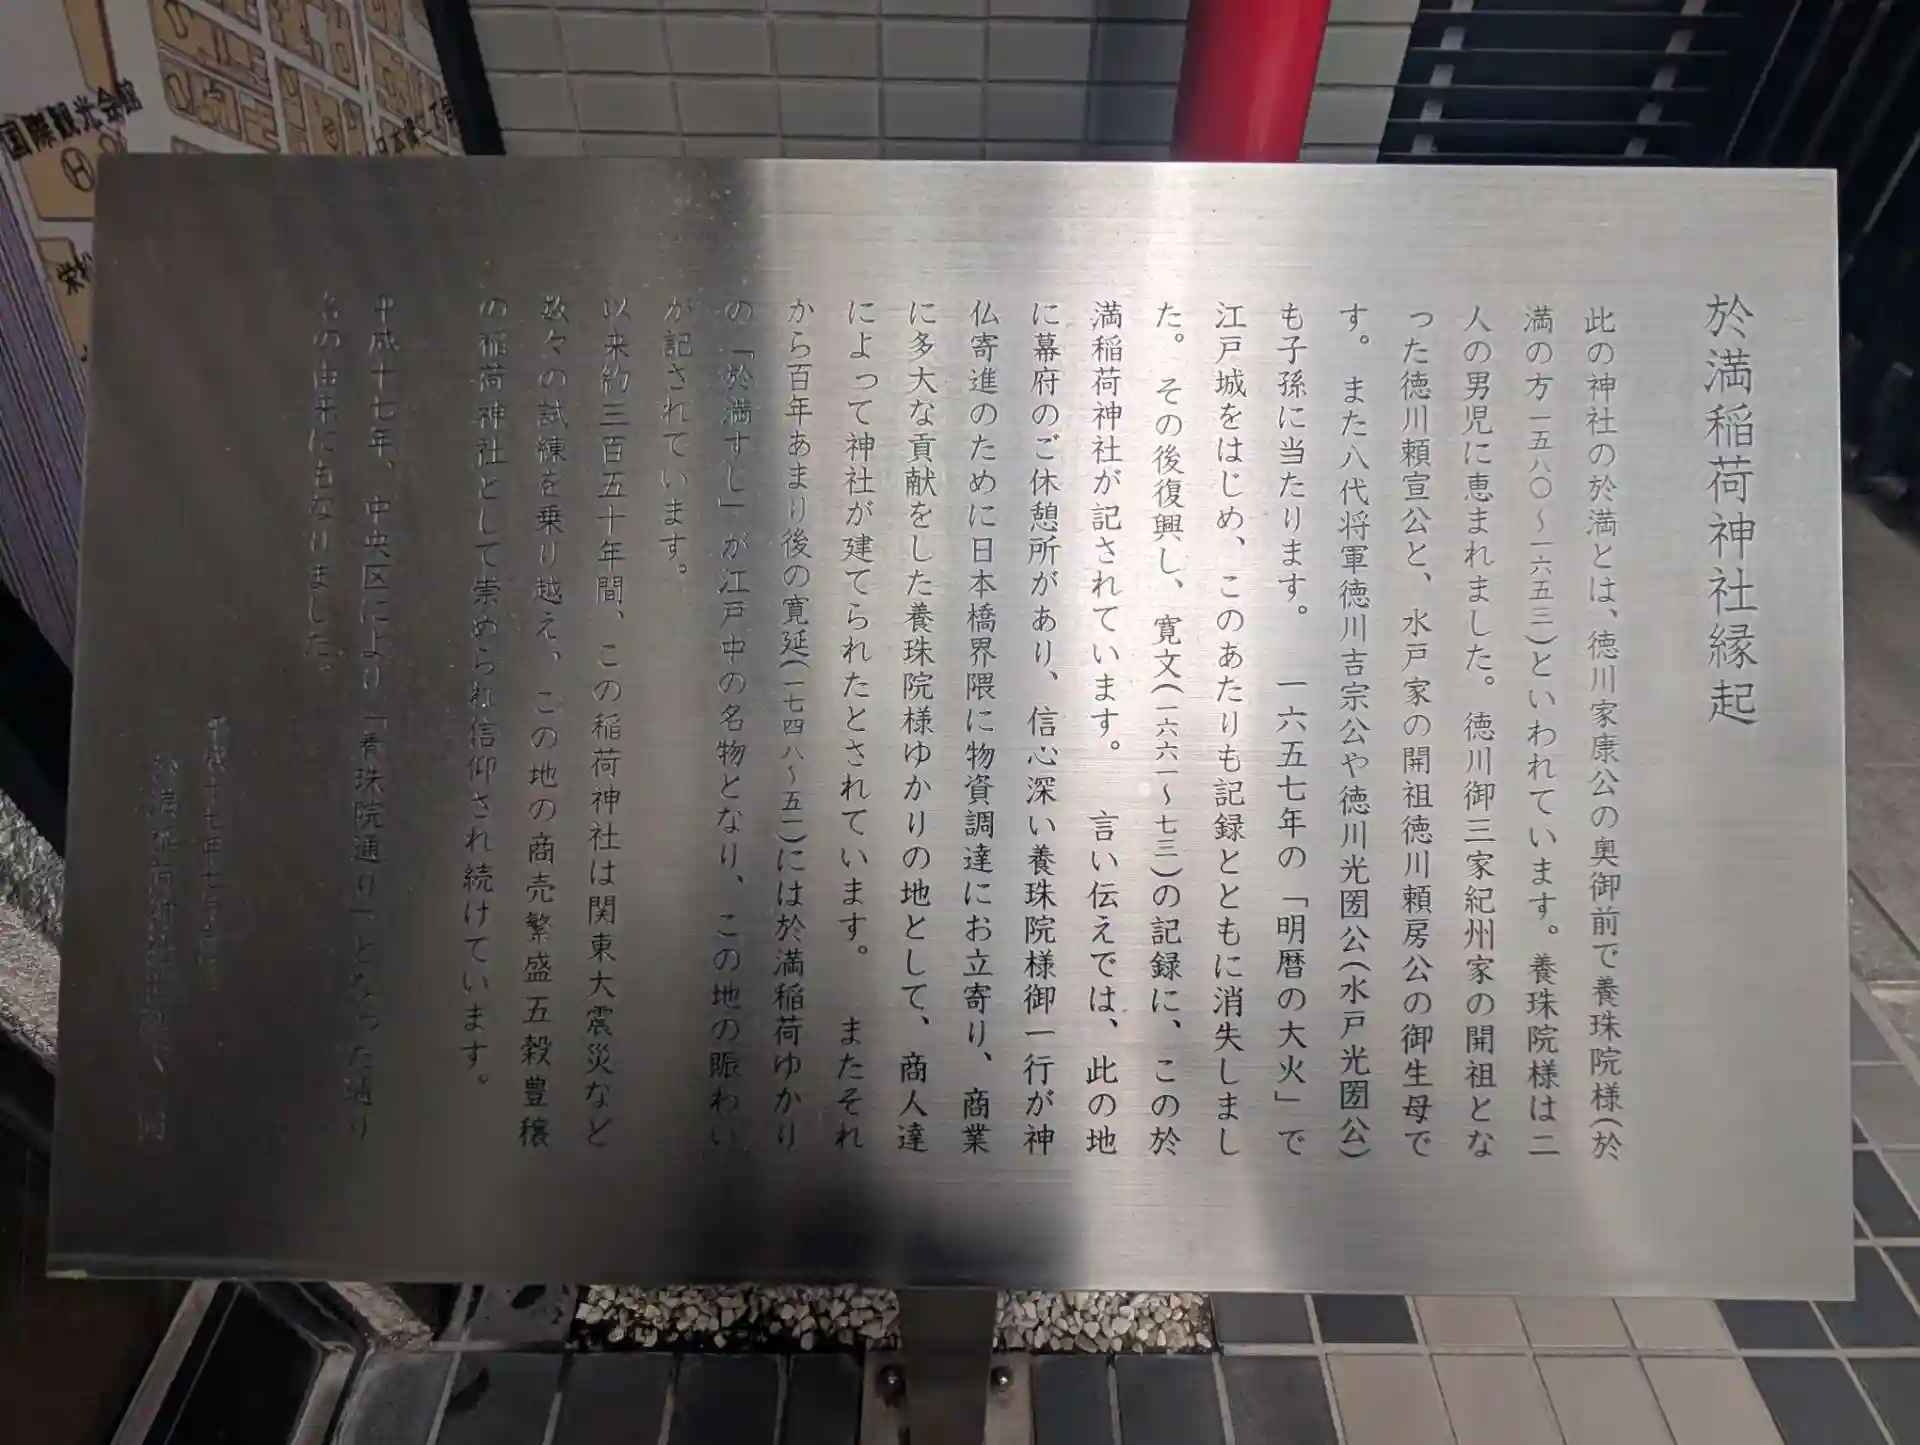 於満稲荷神社縁起
此の神社の於満とは、徳川家康公の奥御前で養珠院様(於
満の方一五八〇～一六五三)といわれています。養珠院様は二
人の男児に恵まれました。徳川御三家紀州家の開祖とな
った徳川頼宣公と、水戸家の開祖徳川頼房公の御生母で
す。また八代将軍徳川吉宗公や徳川光圀公(水戸光圀公)
も子孫に当たります。一六五七年の「明暦の大火」で
江戸城をはじめ、このあたりも記録とともに消失しまし
た。その後復興し、寛文(一六六一～七三)の記録に、この於
満稲荷神社が記されています。言い伝えでは、此の地
に幕府のご休憩所があり、信心深い養珠院様御一行が神
仏寄進のために日本橋界隈に物資調達にお立寄り、商業
に多大な貢献をした養珠院様ゆかりの地として、商人達
によって神社が建てられたとされています。またそれ
から百年あまり後の寛延(一七四八～五一)には於満稲荷ゆかり
の「於満すし」が江戸中の名物となり、この地の賑わい
が記されています。
以来約三百五十年間、この稲荷神社は関東大震災など
数々の試練を乗り越え、この地の商売繁盛五穀豊穣
の稲荷神社として崇められ信仰され続けています。
平成十七年、中央区により「養珠院通り」となった通り
名の由来にもなりました。
平成十七年七月
於満稲荷神社世話人一同
国際観光会館